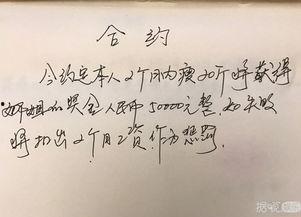 合约
今约定本人2个月内瘦20斤将获得
的奖金人民币50000元整,如失败
将扣出2个月工资作为惩罚.